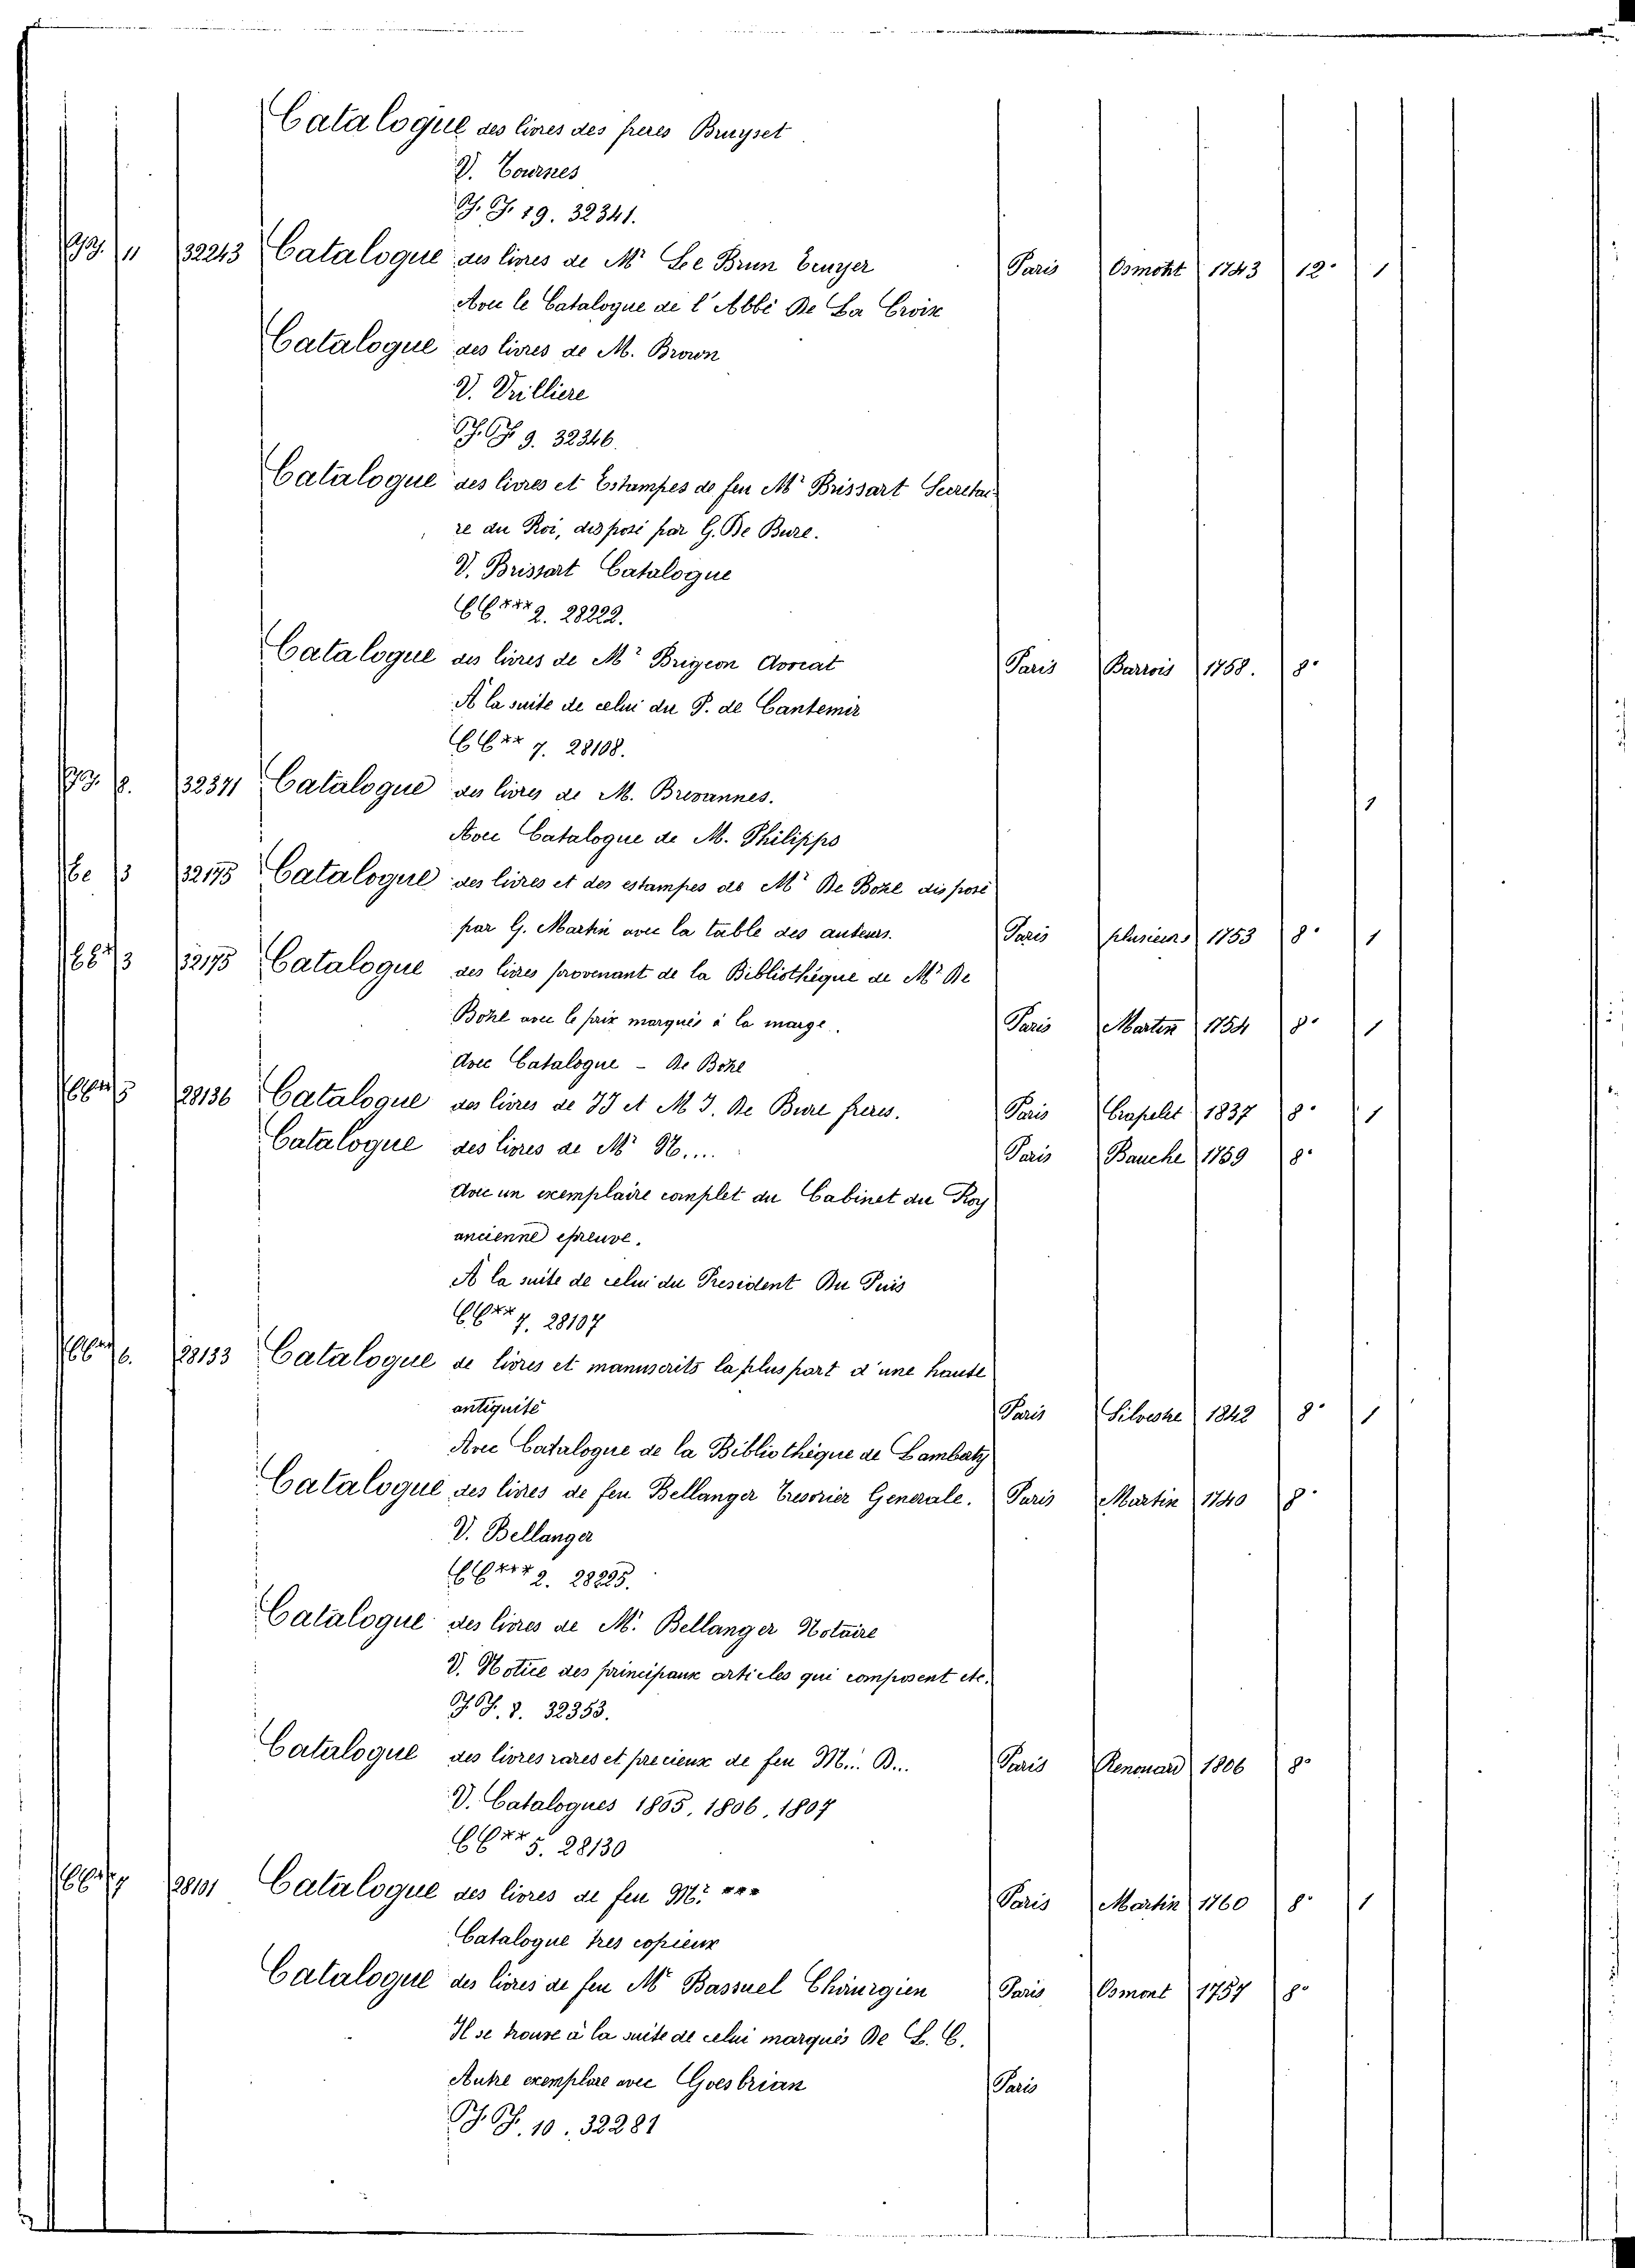 Catalogue des livres des freres Bruyset
V. Tournes
19. 32341.
11 32243 Catalogue des livres de Mr Le Brun Tenyer Paris Osmont 1743 12° 1
Avec le Catalogue de l'Abbé De La Croix
Catalogue des livres de M. Brown
V. Vrilliere
9. 32346.
Catalogue des livres et Estampes de feu Mr Brissart Secretai-
re du Roi, disposé par G. De Bure.
V. Brissart Catalogue
CC*** 2. 28222.
Catalogue des livres de Mr Brigeon Avocat Paris Barrois 1758. 8°
A la suite de celui du P. de Cantemir
CC** 7. 28108.
8. 32371 Catalogue des livres de M. Brevannes. 1
Avec Catalogue de M. Philipps
3 32175 Catalogue des livres et des estampes de Mr De Boze disposé
par G. Martin avec la table des auteurs. Paris plusieurs 1753 8° 1
3 32175 Catalogue des livres provenant de la Bibliothéque de Mr De
Boze avec le prix marqués à la marge. Paris Martin 1754 8° 1
Avec Catalogue - De Boze
5 28136 Catalogue des livres de JJ et M J. De Bure freres. Paris Crapelet 1837 8° 1
Catalogue des livres de Mr N.... Paris Bauche 1759 8°
Avec un exemplaire complet du Cabinet du Roy
ancienne epreuve.
A la suite de celui du President Du Puis
CC** 7. 28107
CC** 6. 28133 Catalogue de livres et manuscrits la plus part d'une haute
antiquité Paris Silvestre 1842 8° 1
Avec Catalogue de la Bibliothéque de Lambert
Catalogue des livres de feu Bellanger Tresorier Generale. Paris Martin 1740 8°
V. Bellanger
CC*** 2. 28225.
Catalogue des livres de M. Bellanger Notaire
V. Notice des principaux articles qui composent etc.
8. 32353.
Catalogue des livres rares et precieux de feu M... B... Paris Renouard 1806 8°
V. Catalogues 1805, 1806, 1807
CC** 5. 28130
CC** 7 28101 Catalogue des livres de feu M. *** Paris Martin 1760 8° 1
Catalogue tres copieux
Catalogue des livres de feu Mr Bassuel Chirurgien Paris Osmont 1757 8°
Il se trouve à la suite de celui marqués De L. C.
Autre exemplare avec Goesbrian Paris
10. 32281